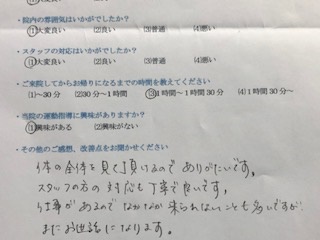 ・院内の雰囲気はいかがでしたか？
(1)大変良い (2)良い (3)普通 (4)悪い
・スタッフの対応はいかがでしたか？
(1)大変良い (2)良い (3)普通 (4)悪い
・ご来院してからお帰りになるまでの時間を教えてください
(1)～30分 (2)30分～1時間 (3)1時間～1時間30分 (4)1時間30分～
・当院の運動指導に興味がありますか？
(1)興味がある (2)興味がない
・その他のご感想、改善点をお聞かせください
体の全体を見て頂けるのでありがたいです。
スタッフの方の対応も丁寧で良いです。
仕事があるのでなかなか来られないことも多いですが
またお世話になります。